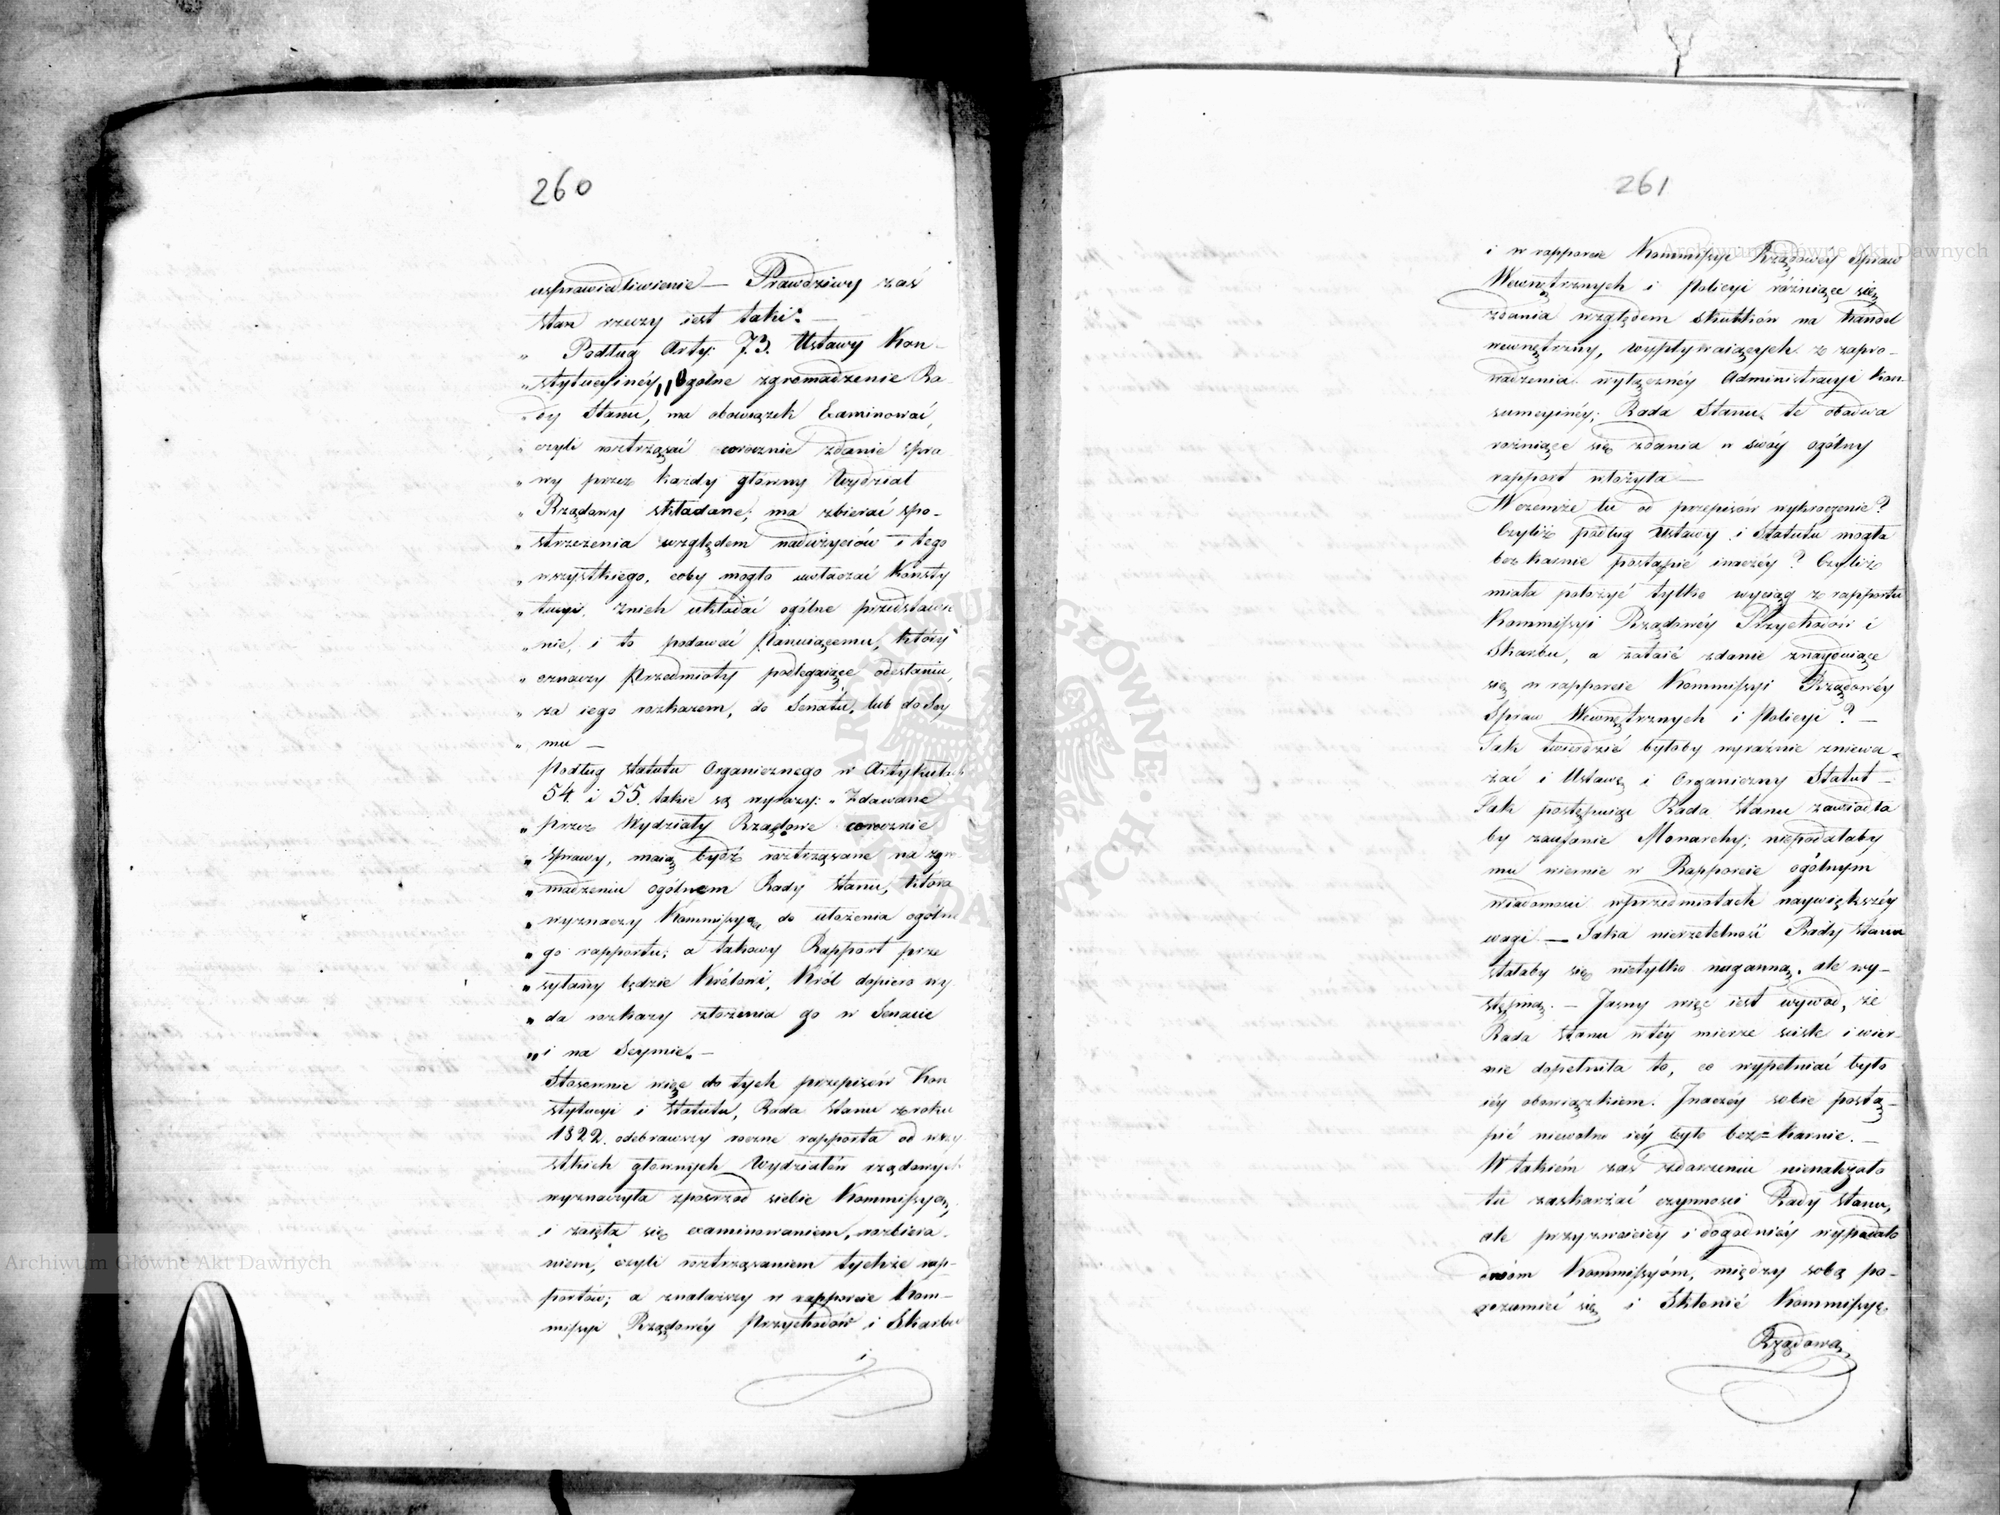 260
usprawiedliwienie — Prawdziwy zaś
stan rzeczy iest taki: —
„ Podług Arty: 73. Ustawy Kon-
„ stytucyinéy, „Ogólne zgromadzenie Ra-
„ dy Stanu, ma obowiązek Examinować,
„ czyli roztrząsać corocznie zdanie spra-
„ wy przez każdy główny Wydział
„ Rządowy składane; ma zbierać spo-
„ strzeżenia względem nadużyciów i tego
„ wszystkiego, coby mogło uwłaczać Konsty
„ tucyi, z nich układać ogólne przedstawie
„ nie, i to podawać Panuiącemu, który
„ oznaczy Przedmioty podlegaiące odesłaniu,
„ za iego rozkazem, do Senatu, lub do Sey
„ mu —
Podług Statutu Organicznego w Artykułach
54. i 55. takie są wyrazy: „ Zdawane
„ przez Wydziały Rządowe corocznie
„ sprawy, maią bydź roztrząsane na zgro
„ madzeniu ogólnem Rady Stanu, która
„ wyznaczy Kommissyą do ułożenia ogólne
„ go rapportu; a takowy Rapport prze
„ syłany będzie Królowi, Król dopiero wy
„ da rozkazy złożenia go w Senacie
„ i na Seymie. —
Stosownie więc do tych przepisów Kon
stytucyi i Statutu, Rada Stanu z roku
1822. odebrawszy roczne rapporta od wszy
stkich głównych Wydziałów rządowych
wyznaczyła z pośrzod siebie Kommissyą,
i zaięła się examinowaniem, rozbiera-
niem, czyli roztrząsaniem tychże rap-
portów; a znalazszy w rapporcie Kom-
missyi Rządowéy Przychodów i Skarbu
i
261
i w rapporcie Kommissyi Rządowey Spraw
Wewnętrznych i Policyi różniące się
zdania względem skutków na handel
wewnętrzny, wypływaiących z zapro-
wadzenia wyłącznéy Administracyi Kon-
sumcyinéy; Rada Stanu te obadwa
rożniące się zdania w swóy ogólny
rapport włożyła —
W czemże tu od przepisów wykroczenie?
Czyliż podług Ustawy i Statutu mogła
bezkarnie postąpić inaczéy? Czyliż
miała położyć tylko wyciąg z rapportu
Kommissyi Rządowéy Przychodów i
Skarbu, a zataić zdanie znayduiące
się w rapporcie Kommissyi Rządowéy
Spraw Wewnętrznych i Policyi? —
Tak twierdzić byłoby wyraźnie zniewa-
żać i Ustawę i Organiczny Statut —
Tak postępuiąc Rada Stanu zawiodła
by zaufanie Monarchy; niepodałaby
mu wiernie w Rapporcie ogólnym
wiadomości w przedmiotach naywiększéy
wagi — Taka nierzetelność Rady Stanu
stałaby się nietylko naganną, ale wy-
stępną. — Jasny więc iest wywód, że
Rada Stanu w téy mierze ściśle i wier-
nie dopełniła to, co wypełniać było
iéy obowiązkiem. Inaczéy sobie postą-
pić niewolno iéy było bez=karnie. —
W takiém zaś zdarzeniu nienależało
tu zaskarżać czynności Rady Stanu,
ale przyzwoiciéy i dogodniéy wypadało
dwom Kommissyóm, między sobą po-
rozumieć się i Skłonić Kommissyę
Rządową,
Archiwum Główne Akt Dawnych
Archiwum Główne Akt Dawnych
ARCHIWUM GŁÓWNE AKT DAWNYCH